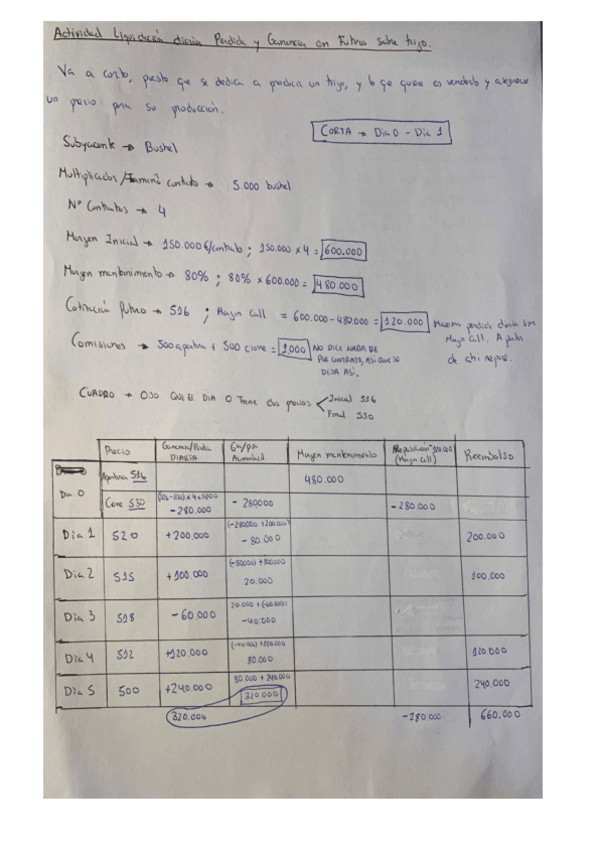 Actividad Liquidación diaria Perdida y Ganancia en Futuros sobre trigo.
Va a corto, puesto que se dedica a producir un trigo, y lo que quiere es venderlo y asegurarse
un precio para su producción.
CORTA → Dia 0 - Dia 1
Subyacente → Bushel
Multiplicador/Tamaño contrato → 5.000 bushel
Nº Contratos → 4
Margen Inicial → 150.000€/contrato ; 150.000 x 4 = 600.000
Margen mantenimiento → 80% ; 80% x 600.000 = 480.000
Cotización futuro → 516 ; Margin Call = 600.000 - 480.000 = 120.000 Maxima perdida diaria sin
Margin Call. A partir
de ahi repone.
Comisiones → 500 apertura + 500 cierre = 1.000 NO DICE NADA DE
POR CONTRATO, ASI QUE SE
DEJA ASI.
CUADRO → OJO QUE EL DIA 0 Tiene dos precios Inicial 516
Final 530
Precio Ganancia/Perdida DIARIA Ga/Pa Acumulada Margen mantenimiento Reposición (Margin Call) Reembolso
Dia 0 Apertura 516 480.000
Cierre 530 -280.000 -280000 -280.000
Dia 1 520 +200.000 (-280000 +200.000) -80.000 200.000
Dia 2 515 +100.000 (-80000) + 100000 20.000 100.000
Dia 3 518 -60.000 20.000 + (-60.000) = -40.000
Dia 4 512 +120.000 80.000 120.000
Dia 5 500 +240.000 80.000 + 240.000 240.000
320.000 -280.000 660.000